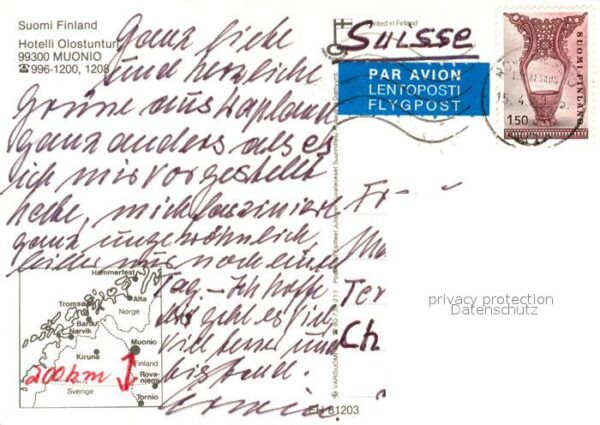 Suomi Finland
Hotelli Olostunturi
99300 MUONIO
☎996-1200, 1208
Printed in Finland
Suisse
PAR AVION
LENTOPOSTI
FLYGPOST
SUOMI-FINLAND
1.50
Ganz liebe
und herzliche
Grüsse aus Lappland
ganz anders als es
ich mir vorgestellt
habe, mich fasziniert
ganz ungewöhnlich,
leider nur noch einen
Tag. - Ich hoffe
geht es
viel besser und
Fr
Ma
Ter
Ch
privacy protection
Datenschutz
Hammerfest
Alta
Tromsø
Norge
Bardu
Narvik
Muonio
Kiruna
Finland
Rova-
niemi
200 km
Sverige
Tornio
EH 81203